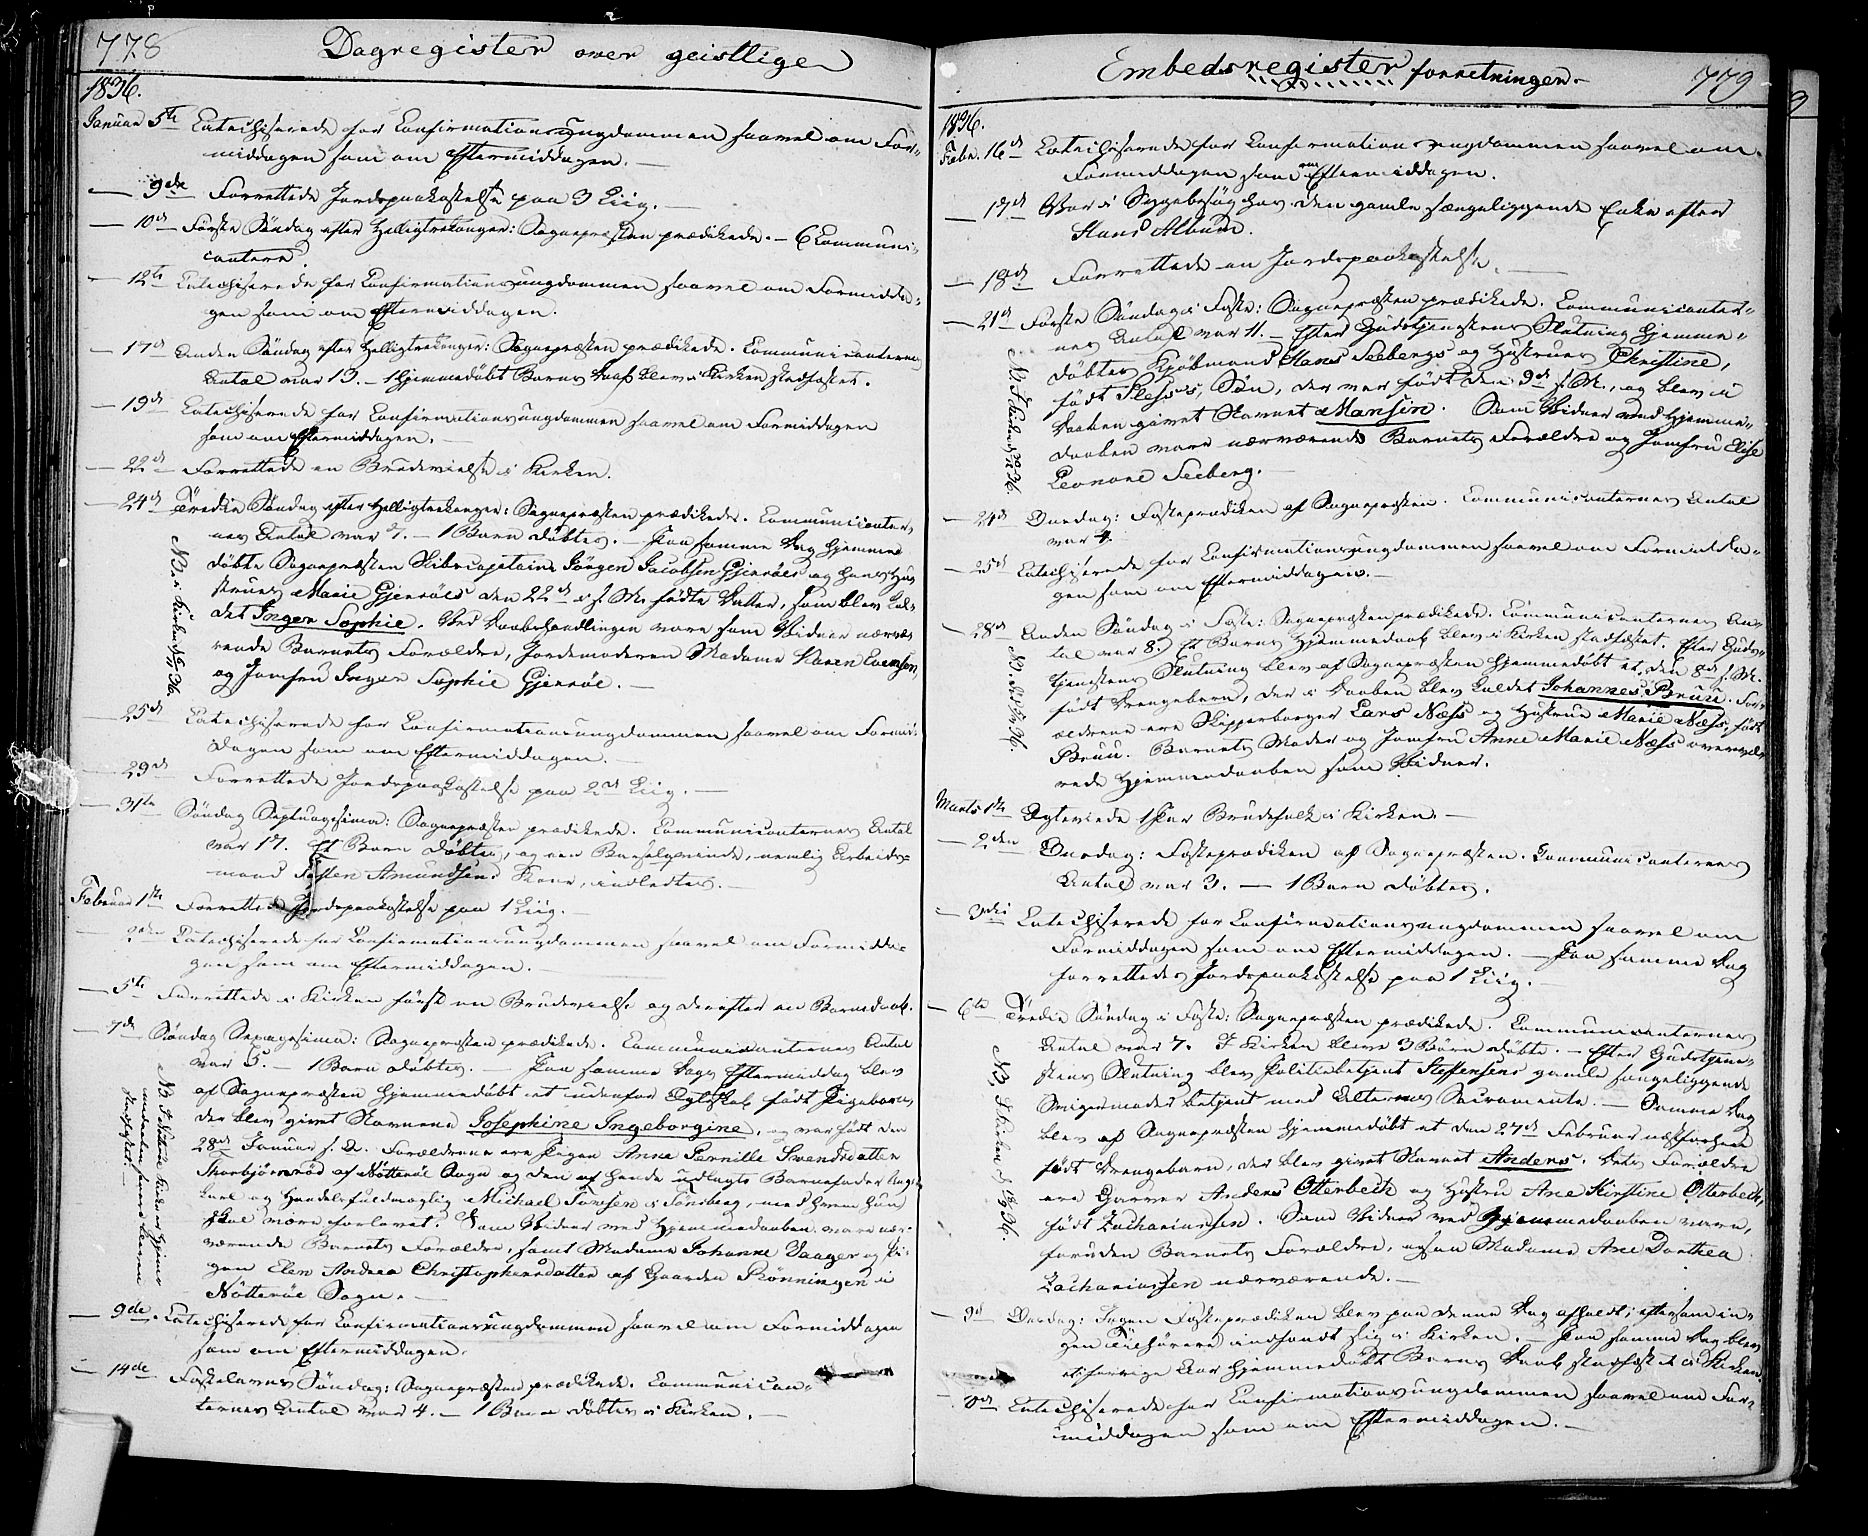 778
Dagregister over geistlige
1836.
Januar 5te Catechiserede for Confirmationsungdommen saavel om For-
middagen som om Eftermiddagen. —
— 9de Forrettede Jordspaakastelse paa 3 Liig. —
— 10de Første Søndag efter Helligtrekonger: Sognepræsten prædikede. — 6 Communi-
cantere.
— 12te Catechiserede for Confirmationsungdommen saavel om Formidda-
gen som om Eftermiddagen.
— 17de Anden Søndag efter Helligtrekonger: Sognepræsten prædikede. Communicanternes
Antal var 13. — 1 Hjemmedøbt Barns Daab blev i Kirken stadfæstet.
— 19de Catechiserede for Confirmationsungdommen saavel om Formiddagen
som om Eftermiddagen. —
— 22de Forrettede en Brudevielse i Kirken.
— 24de Tredie Søndag efter Helligtrekonger: Sognepræsten prædikede. Communicanter-
nes Antal var 7. — 1 Barn døbtes. — Paa samme Dag hjemme-
døbte Sognepræsten Skibscapitain Jørgen Jacobsen Gjerøes og hans Hu-
strues Marie Gjerøes den 22de i f. M. fødte Datter, som blev kal-
det Inger Sophie. Ved Daabshandlingen vare som Vidner nærvæ-
rende Barnets Forældre, Jordemoderen Madame Karen Evensen,
og Jomfru Inger Sophie Gjerøe. —
— 25de Catechiserede for Confirmationsungdommen saavel om Formid-
dagen som om Eftermiddagen. —
— 29de Forrettede Jordspaakastelse paa 2de Liig. —
— 31te Søndag Septuagesima: Sognepræsten prædikede. Communicanternes Antal
var 17. Et Barn døbtes, og en Barselqvinde, nemlig Arbeids-
mand Amundsens Kone, indledtes. —
Februar 1te Forrettede Jordspaakastelse paa 1 Liig. —
— Catechiserede for Confirmationsungdommen saavel om Formidda-
gen som om Eftermiddagen. —
— 5te Forrettede i Kirken først en Brudevielse og derefter en Barnedaab.
— 7de Søndag Sexagesima: Sognepræsten prædikede. Communicanternes Antal
var 5. — 1 Barn døbtes. — Paa samme Dags Eftermiddag blev
af Sognepræsten hjemmedøbt et udenfor Ægteskab født Pigebarn,
der blev givet Navnene Josephine Ingeborgine, og var født den
28de Januar f. A. Forældrene ere Pigen Anne Pernille Svendsdatter
Thorbjørnrød af Nøtterøe Sogn og den af hende udlagte Barnefader Ung-
karl og Handelsfuldmægtig Michael Tønsberg, med hvem hun
skal være forlovet. Som Vidner ved Hjemmedaaben vare nær-
værende Barnets Forældre, samt Madame Johanne Saager og Pi-
gen Elen Andrea Christophersdatter af Gaarden Rønningen i
Nøtterøe Sogn. —
— 9de Catechiserede for Confirmationsungdommen saavel om Formiddagen
som om Eftermiddagen.
— 14de Fastelavns Søndag: Sognepræsten prædikede. Communican-
ternes Antal var 4. — 1 Barn døbtes i Kirken. —
Embedsregister forretningen. — 779
1836.
Febr. 16de Catechiserede for Confirmationsungdommen saavel om
Formiddagen som om Eftermiddagen.
— 17de Var i Sygebesøg hos den gamle sængeliggende Enke efter
Hans Album.
— 18de Forrettede en Jordspaakastelse. —
— 21de Første Søndag i Faste: Sognepræsten prædikede. Communicanter-
nes Antal var 11. — Efter Gudstjenestens Slutning hjemme-
døbtes Kjøbmand Hans Seebergs og Hustrues Christine,
født Plesss, Søn, der var født den 9de f. M., og blev i
Daaben givet Navnet Mansin. Som Vidner ved Hjemme-
daaben vare nærværende Barnets Forældre og Jomfru Elise
Leonore Seeberg. —
— 24de Onsdag: Fasteprædiken af Sognepræsten. Communicanternes Antal
var 4.
— 25de Catechiserede for Confirmationsungdommen saavel om Formidda-
gen som om Eftermiddagen. —
— 28de Anden Søndag i Faste: Sognepræsten prædikede. Communicanternes An-
tal var 8. Et Barns Hjemmedaab blev i Kirken stadfæstet. Efter Guds-
tjenestens Slutning blev af Sognepræsten hjemmedøbt et, den 8de f. M.
født Drengebarn, der i Daaben blev kaldet Johannes Bruu. For-
ældrene ere Skipperborger Lars Næss og Hustru Marie Næss, født
Bruu. Barnets Moder og Jomfru Anne Marie Næss overvæ-
rede Hjemmedaaben som Vidner.
Marts 1te Ægteviede 1 Par Brudefolk i Kirken. —
— 2den Onsdag: Fasteprædiken af Sognepræsten. Communicanternes
Antal var 3. — 1 Barn døbtes.
— 3die Catechiserede for Confirmationsungdommen saavel om
Formiddagen som om Eftermiddagen. — Paa samme Dag
forrettedes Jordspaakastelse paa 1 Liig. —
— 6te Tredie Søndag i Faste: Sognepræsten prædikede. Communicanternes
Antal var 7. I Kirken bleve 3 Børn døbte. — Efter Gudstjene-
stens Slutning blev Politiebetjent Steffensens gamle sængeliggende
Svigermoder betjent med Alterens Sacramente. — Samme Dag
blev af Sognepræsten hjemmedøbt et den 27de Februar næstforhen
født Drengebarn, der blev givet Navnet Anders. Dets Forældre
ere Garver Anders Otterbech og Hustru Ane Kirstine Otterbech,
født Zachariassen. Som Vidner ved Hjemmedaaben vare,
foruden Barnets Forældre, ogsaa Madame Ane Dorthea
Zachariassen nærværende. —
— 9de Onsdag: Ingen Fasteprædiken blev paa denne Dag afholdt, eftersom in-
gen Tilhørere indfandt sig i Kirken. — Paa samme Dag blev
et forrige Aar hjemmedøbt Barns Daab stadfæstet i Kirken.
— Catechiserede for Confirmationsungdommen saavel om For-
middagen som om Eftermiddagen. —